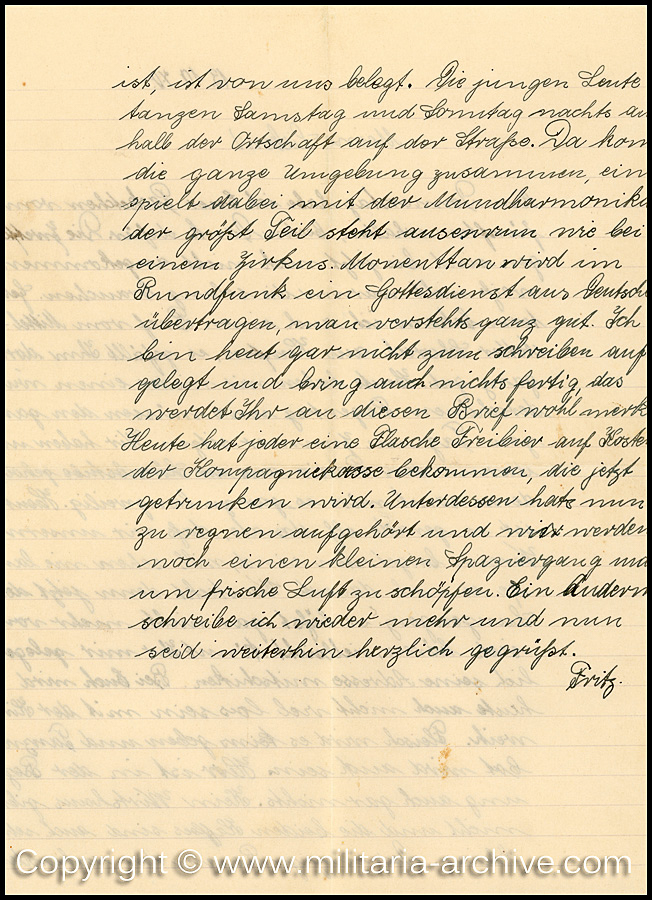 ist, ist von uns belegt. Die jungen Leute
tanzen Samstag und Sonntag nachts au
halb der Ortschaft auf der Straße. Da kom
die ganze Umgebung zusammen, ein
spielt dabei mit der Mundharmonika
der größt Teil steht ausenrum wie bei
einem Zirkus. Momenttan wird im
Rundfunk ein Gottesdienst aus Deutschl
übertragen, man verstehts ganz gut. Ich
bin heut gar nicht zum schreiben auf
gelegt und bring auch nichts fertig, das
werdet Ihr an diesen Brief wohl merk
Heute hat jeder eine Flasche Freibier auf Koste
der Kompagniekasse bekommen, die jetzt
getrunken wird. Unterdessen hats nun
zu regnen aufgehört und wir werden
noch einen kleinen Spaziergang ma
um frische Luft zu schöpfen. Ein Anderm
schreibe ich wieder mehr und nun
seid weiterhin herzlich gegrüßt.
Fritz.
Copyright © www.militaria-archive.com